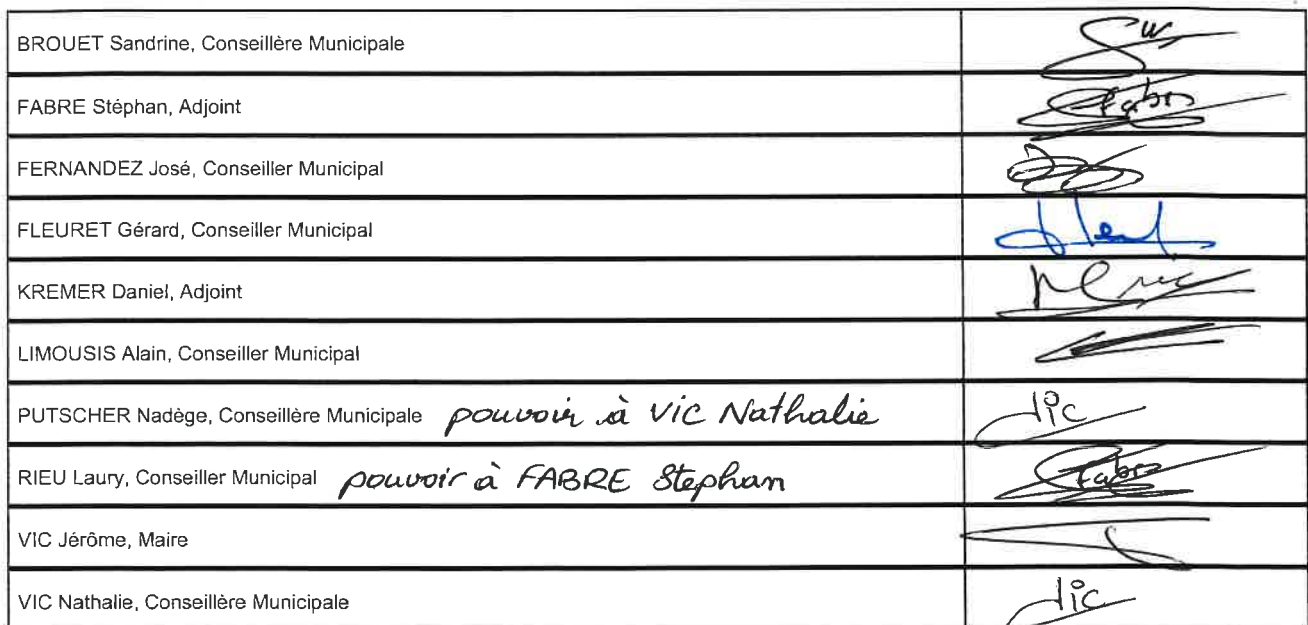 BROUET Sandrine, Conseillère Municipale
FABRE Stéphan, Adjoint Fabre
FERNANDEZ José, Conseiller Municipal
FLEURET Gérard, Conseiller Municipal
KREMER Daniel, Adjoint
LIMOUSIS Alain, Conseiller Municipal
PUTSCHER Nadège, Conseillère Municipale pouvoir à Vic Nathalie Vic
RIEU Laury, Conseiller Municipal pouvoir à FABRE Stephan Fabre
VIC Jérôme, Maire
VIC Nathalie, Conseillère Municipale Vic